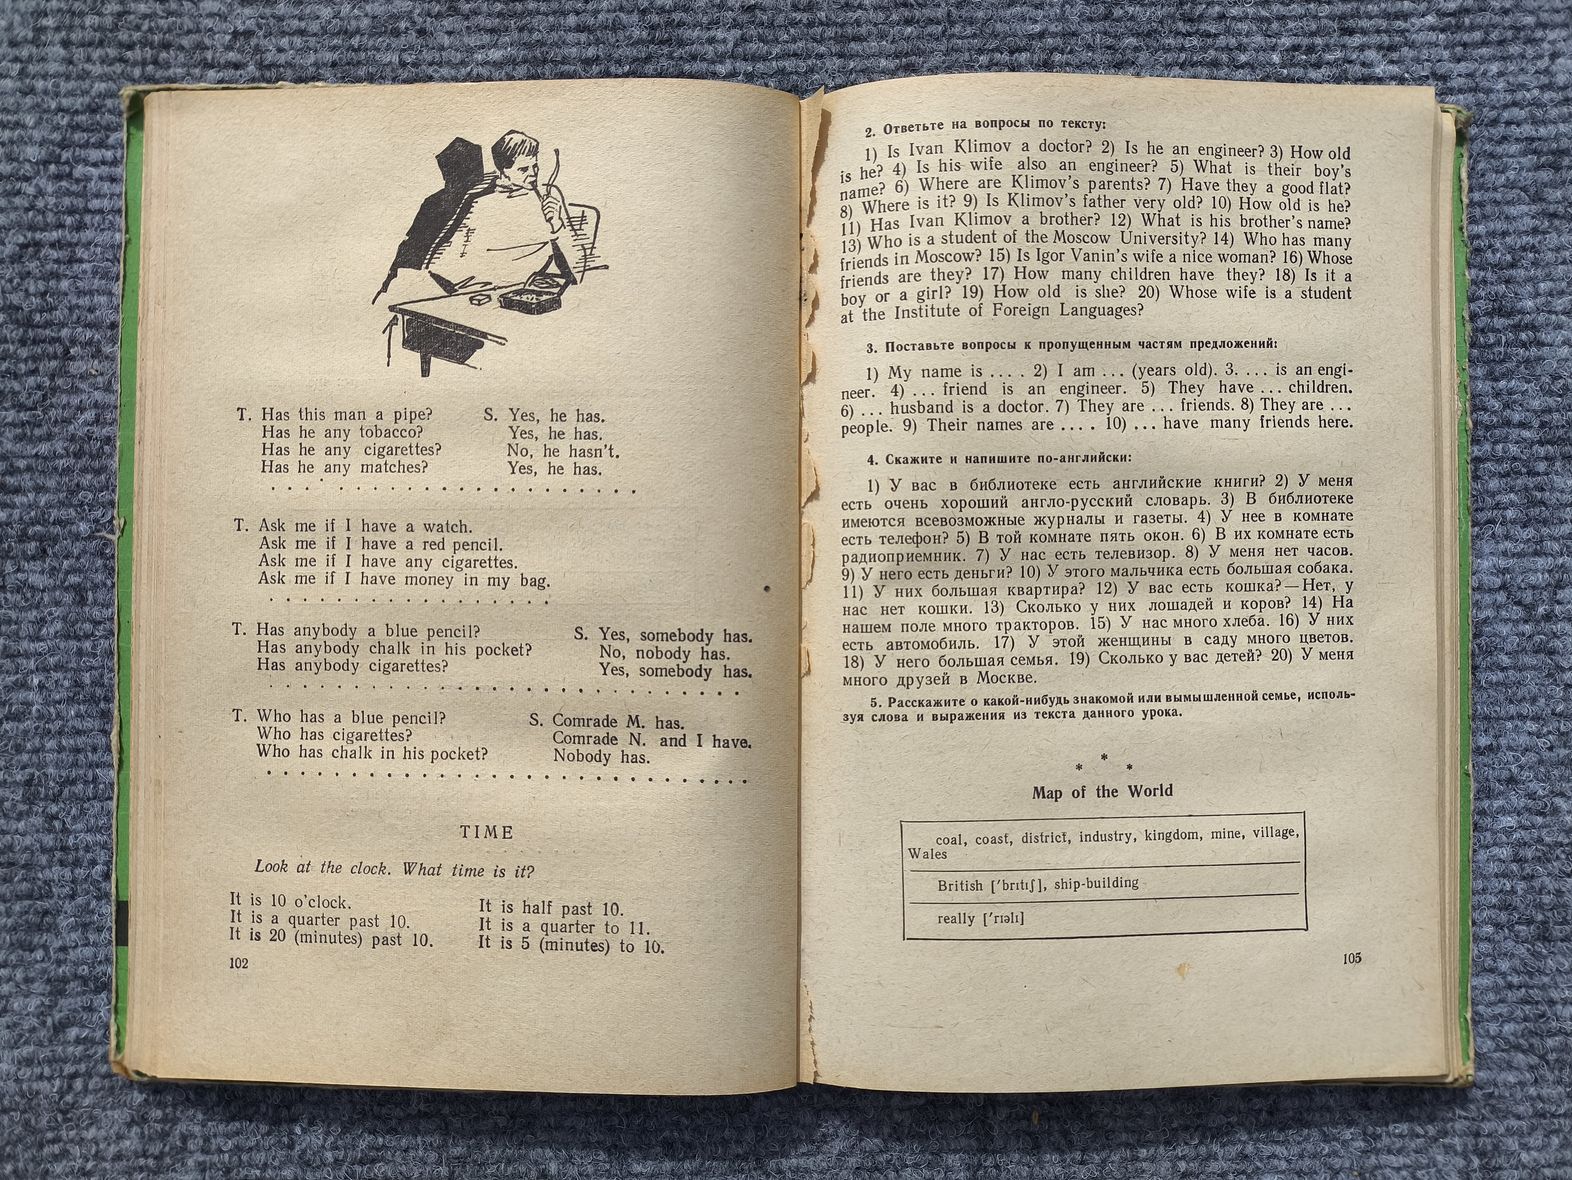 T. Has this man a pipe? S. Yes, he has.
Has he any tobacco? Yes, he has.
Has he any cigarettes? No, he hasn't.
Has he any matches? Yes, he has.
. . . . . . . . . . . . . . . . . . . . . .
T. Ask me if I have a watch.
Ask me if I have a red pencil.
Ask me if I have any cigarettes.
Ask me if I have money in my bag.
. . . . . . . . . . . . . . . . .
T. Has anybody a blue pencil? S. Yes, somebody has.
Has anybody chalk in his pocket? No, nobody has.
Has anybody cigarettes? Yes, somebody has.
. . . . . . . . . . . . . . . . . . . . . . . . . . . . .
T. Who has a blue pencil? S. Comrade M. has.
Who has cigarettes? Comrade N. and I have.
Who has chalk in his pocket? Nobody has.
. . . . . . . . . . . . . . . . . . . . . . . . . . . . .
TIME
Look at the clock. What time is it?
It is 10 o'clock. It is half past 10.
It is a quarter past 10. It is a quarter to 11.
It is 20 (minutes) past 10. It is 5 (minutes) to 10.
102
2. Ответьте на вопросы по тексту:
1) Is Ivan Klimov a doctor? 2) Is he an engineer? 3) How old
is he? 4) Is his wife also an engineer? 5) What is their boy's
name? 6) Where are Klimov's parents? 7) Have they a good flat?
8) Where is it? 9) Is Klimov's father very old? 10) How old is he?
11) Has Ivan Klimov a brother? 12) What is his brother's name?
13) Who is a student of the Moscow University? 14) Who has many
friends in Moscow? 15) Is Igor Vanin's wife a nice woman? 16) Whose
friends are they? 17) How many children have they? 18) Is it a
boy or a girl? 19) How old is she? 20) Whose wife is a student
at the Institute of Foreign Languages?
3. Поставьте вопросы к пропущенным частям предложений:
1) My name is .... 2) I am ... (years old). 3. .... is an engi-
neer. 4) ... friend is an engineer. 5) They have ... children.
6) ... husband is a doctor. 7) They are ... friends. 8) They are ...
people. 9) Their names are .... 10) ... have many friends here.
4. Скажите и напишите по-английски:
1) У вас в библиотеке есть английские книги? 2) У меня
есть очень хороший англо-русский словарь. 3) В библиотеке
имеются всевозможные журналы и газеты. 4) У нее в комнате
есть телефон? 5) В той комнате пять окон. 6) В их комнате есть
радиоприемник. 7) У нас есть телевизор. 8) У меня нет часов.
9) У него есть деньги? 10) У этого мальчика есть большая собака.
11) У них большая квартира? 12) У вас есть кошка? — Нет, у
нас нет кошки. 13) Сколько у них лошадей и коров? 14) На
нашем поле много тракторов. 15) У нас много хлеба. 16) У них
есть автомобиль. 17) У этой женщины в саду много цветов.
18) У него большая семья. 19) Сколько у вас детей? 20) У меня
много друзей в Москве.
5. Расскажите о какой-нибудь знакомой или вымышленной семье, исполь-
зуя слова и выражения из текста данного урока.
* * *
Map of the World
coal, coast, district, industry, kingdom, mine, village,
Wales
British ['brıtıʃ], ship-building
really ['rıəlı]
105